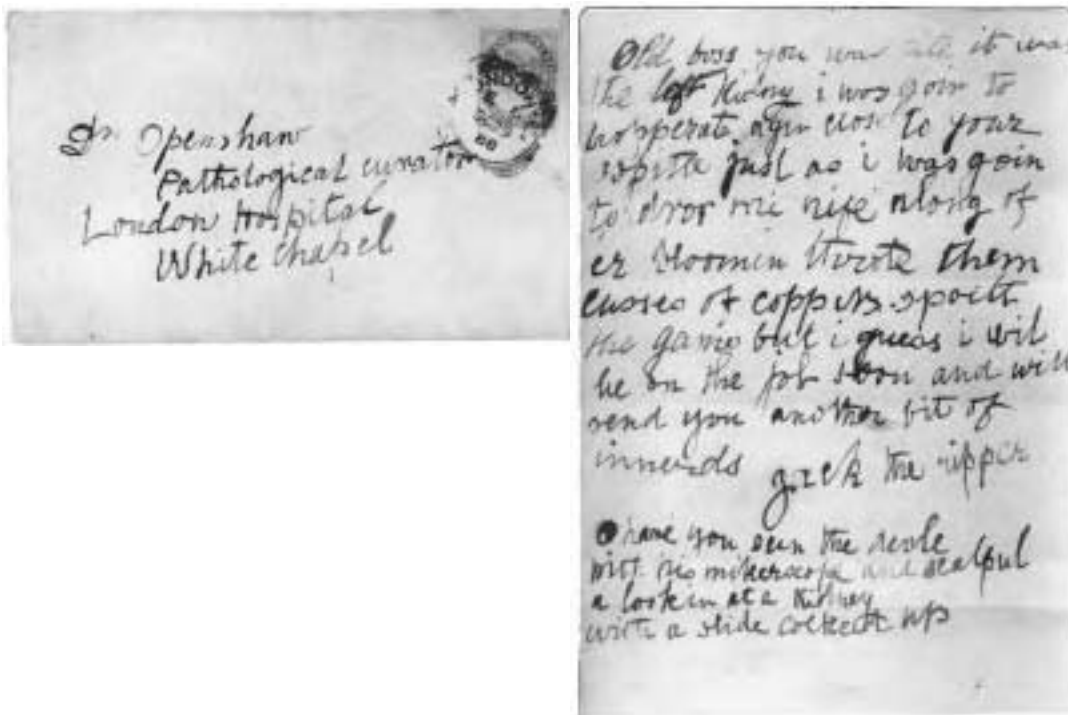 Dr Openshaw
Pathological curator
London Hospital
White chapel
Old boss you was rite it was
the left kidny i was goin to
hoperate agin close to your
ospitle just as i was goin
to dror mi nife along of
er bloomin throte them
cusses of coppers spoilt
the game but i guess i wil
be on the job soon and will
send you another bit of
innerds Jack the ripper
O have you seen the devle
with his mikerscope and scalpul
a lookin at a Kidney
with a slide cocked up